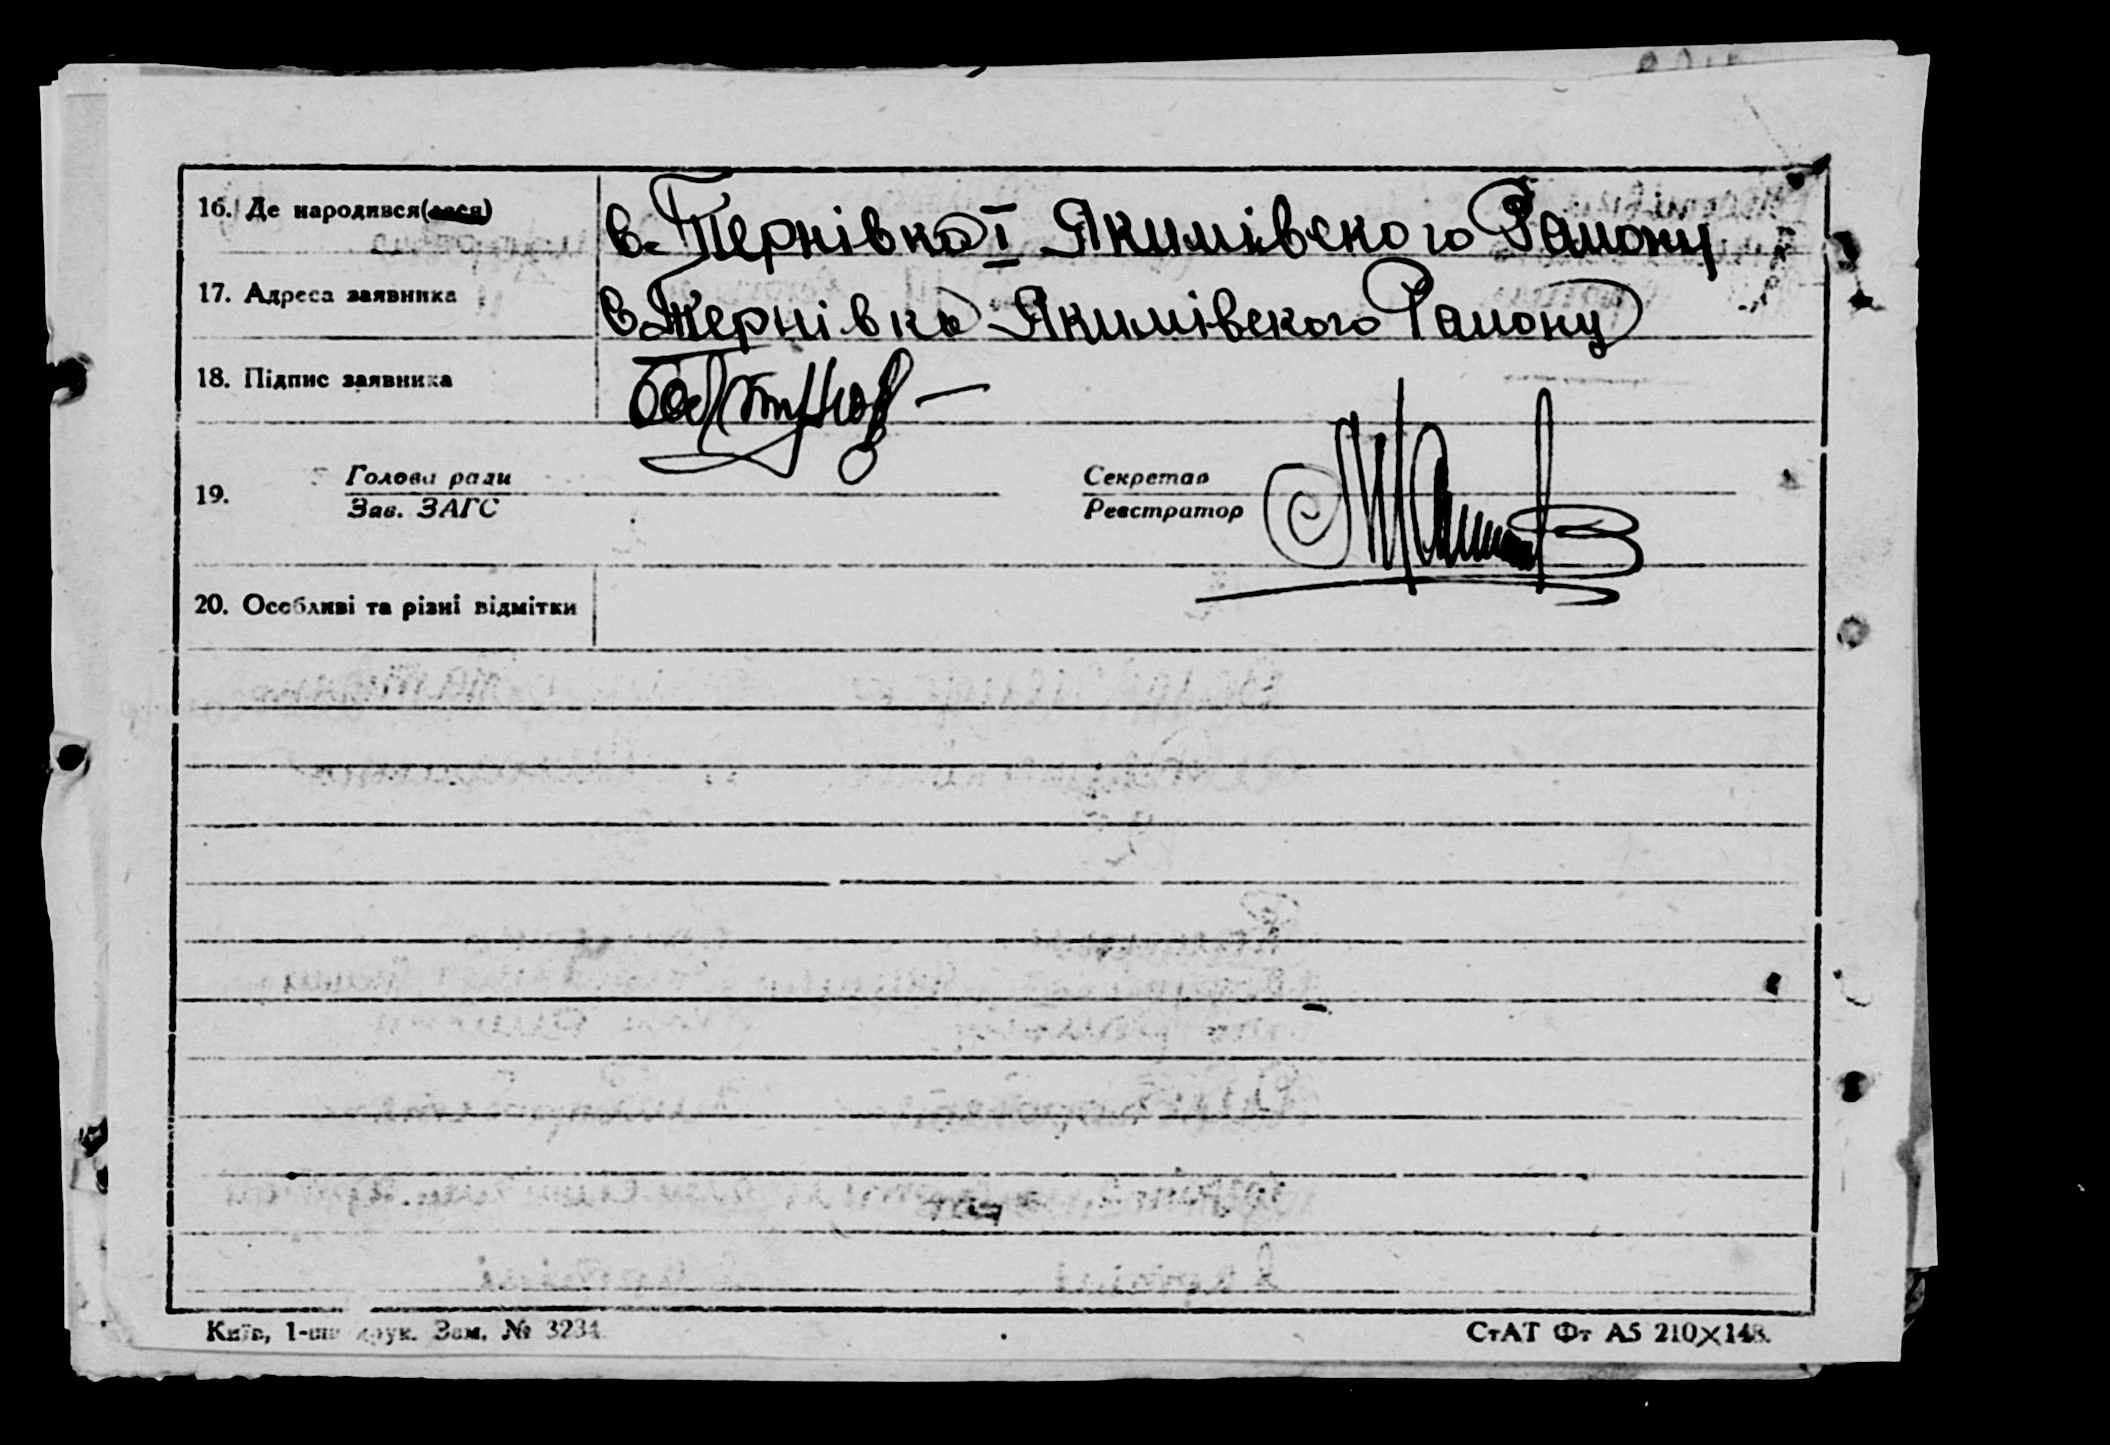 16. Де народився(лася) с. Тернівка I Якимівского Району
17. Адреса заявника с. Тернівка Якимівского Району
18. Підпис заявника
Голова ради Секретар
19.
Зав. ЗАГС Реєстратор
20. Особливі та різні відмітки
Київ, 1-ша друк. Зам. № 3234 СтАТ Фт А5 210×148.